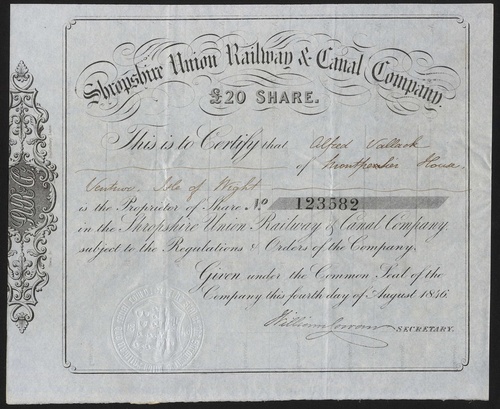 Shropshire Union Railway & Canal Company.
£20 SHARE.
This is to Certify that Alfred Vallack
of Montpellier House
Ventnor. Isle of Wight
is the Proprietor of Share No 123582
in the Shropshire Union Railway & Canal Company,
subject to the Regulations & Orders of the Company.
Given under the Common Seal of the
Company this fourth day of August 1846.
William SECRETARY.